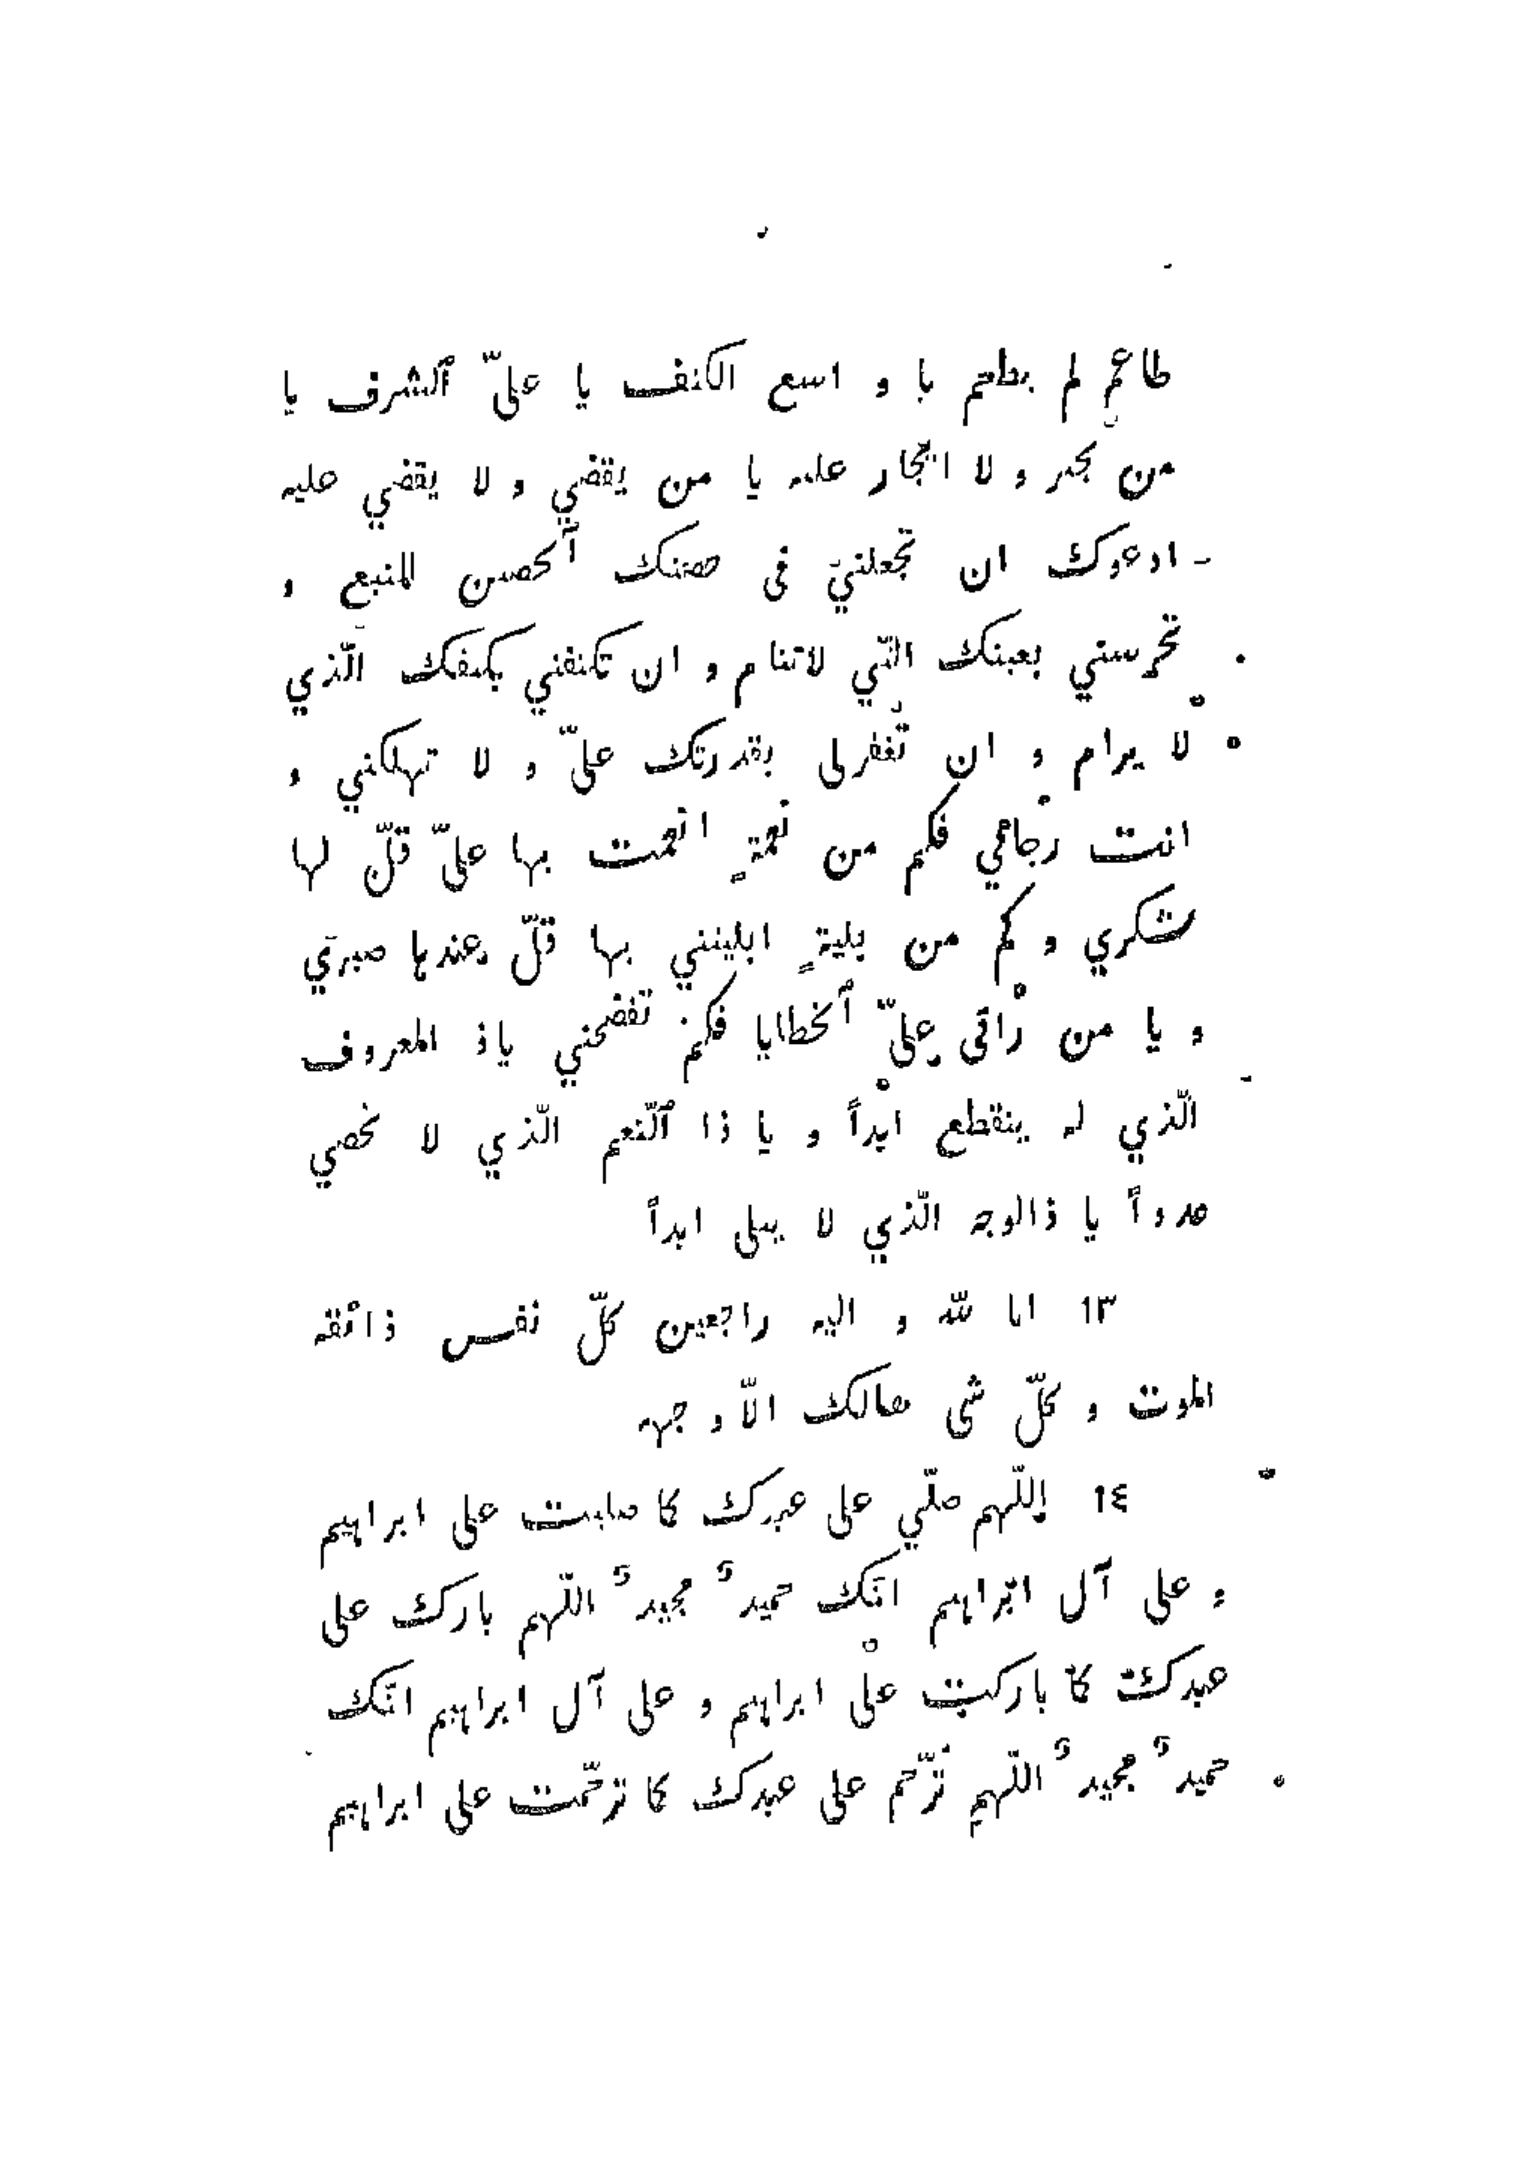 طاعم لم يطعم يا و اسع الكنف يا عليّ الشرف يا
من يجير و لا ايجار عليه يا من يقضي و لا يقضي عليه
ادعوك ان تجعلني فى حصنك الحصن المنيع و
تحرسني بعينك التّي لاتنام و ان تكنفني بكنفك الّذي
لا يرام و ان تغفرلى بقدرتك عليّ و لا تهلكني و
انت رجاءي فكم من نعمةٍ انعمت بها عليّ قلّ لها
شكري و كم من بليةٍ ابليتني بها قلّ عندها صبري
و يا من راٰني عليّ الخطايا فكم تفضحني ياذ المعروف
الّذي لم ينقطع ابداً و يا ذا النّعم الّذي لا تحصي
عدداً يا ذالوجه الّذي لا يبلى ابداً
١٣ انا للّه و اليه راجعين كلّ نفس ذائقه
الموت و كلّ شى هالك الاّ و جهه
١٤ اللّهم صلّي على عبدك كما صليت على ابراهيم
و على آل ابراهيم انّك حميدٌ مجيدٌ اللّهم بارك على
عبدك كما باركت على ابراهيم و على آل ابراهيم انّك
حميدٌ مجيدٌ اللّهم ترّحم على عبدك كما ترحّمت على ابراهيم